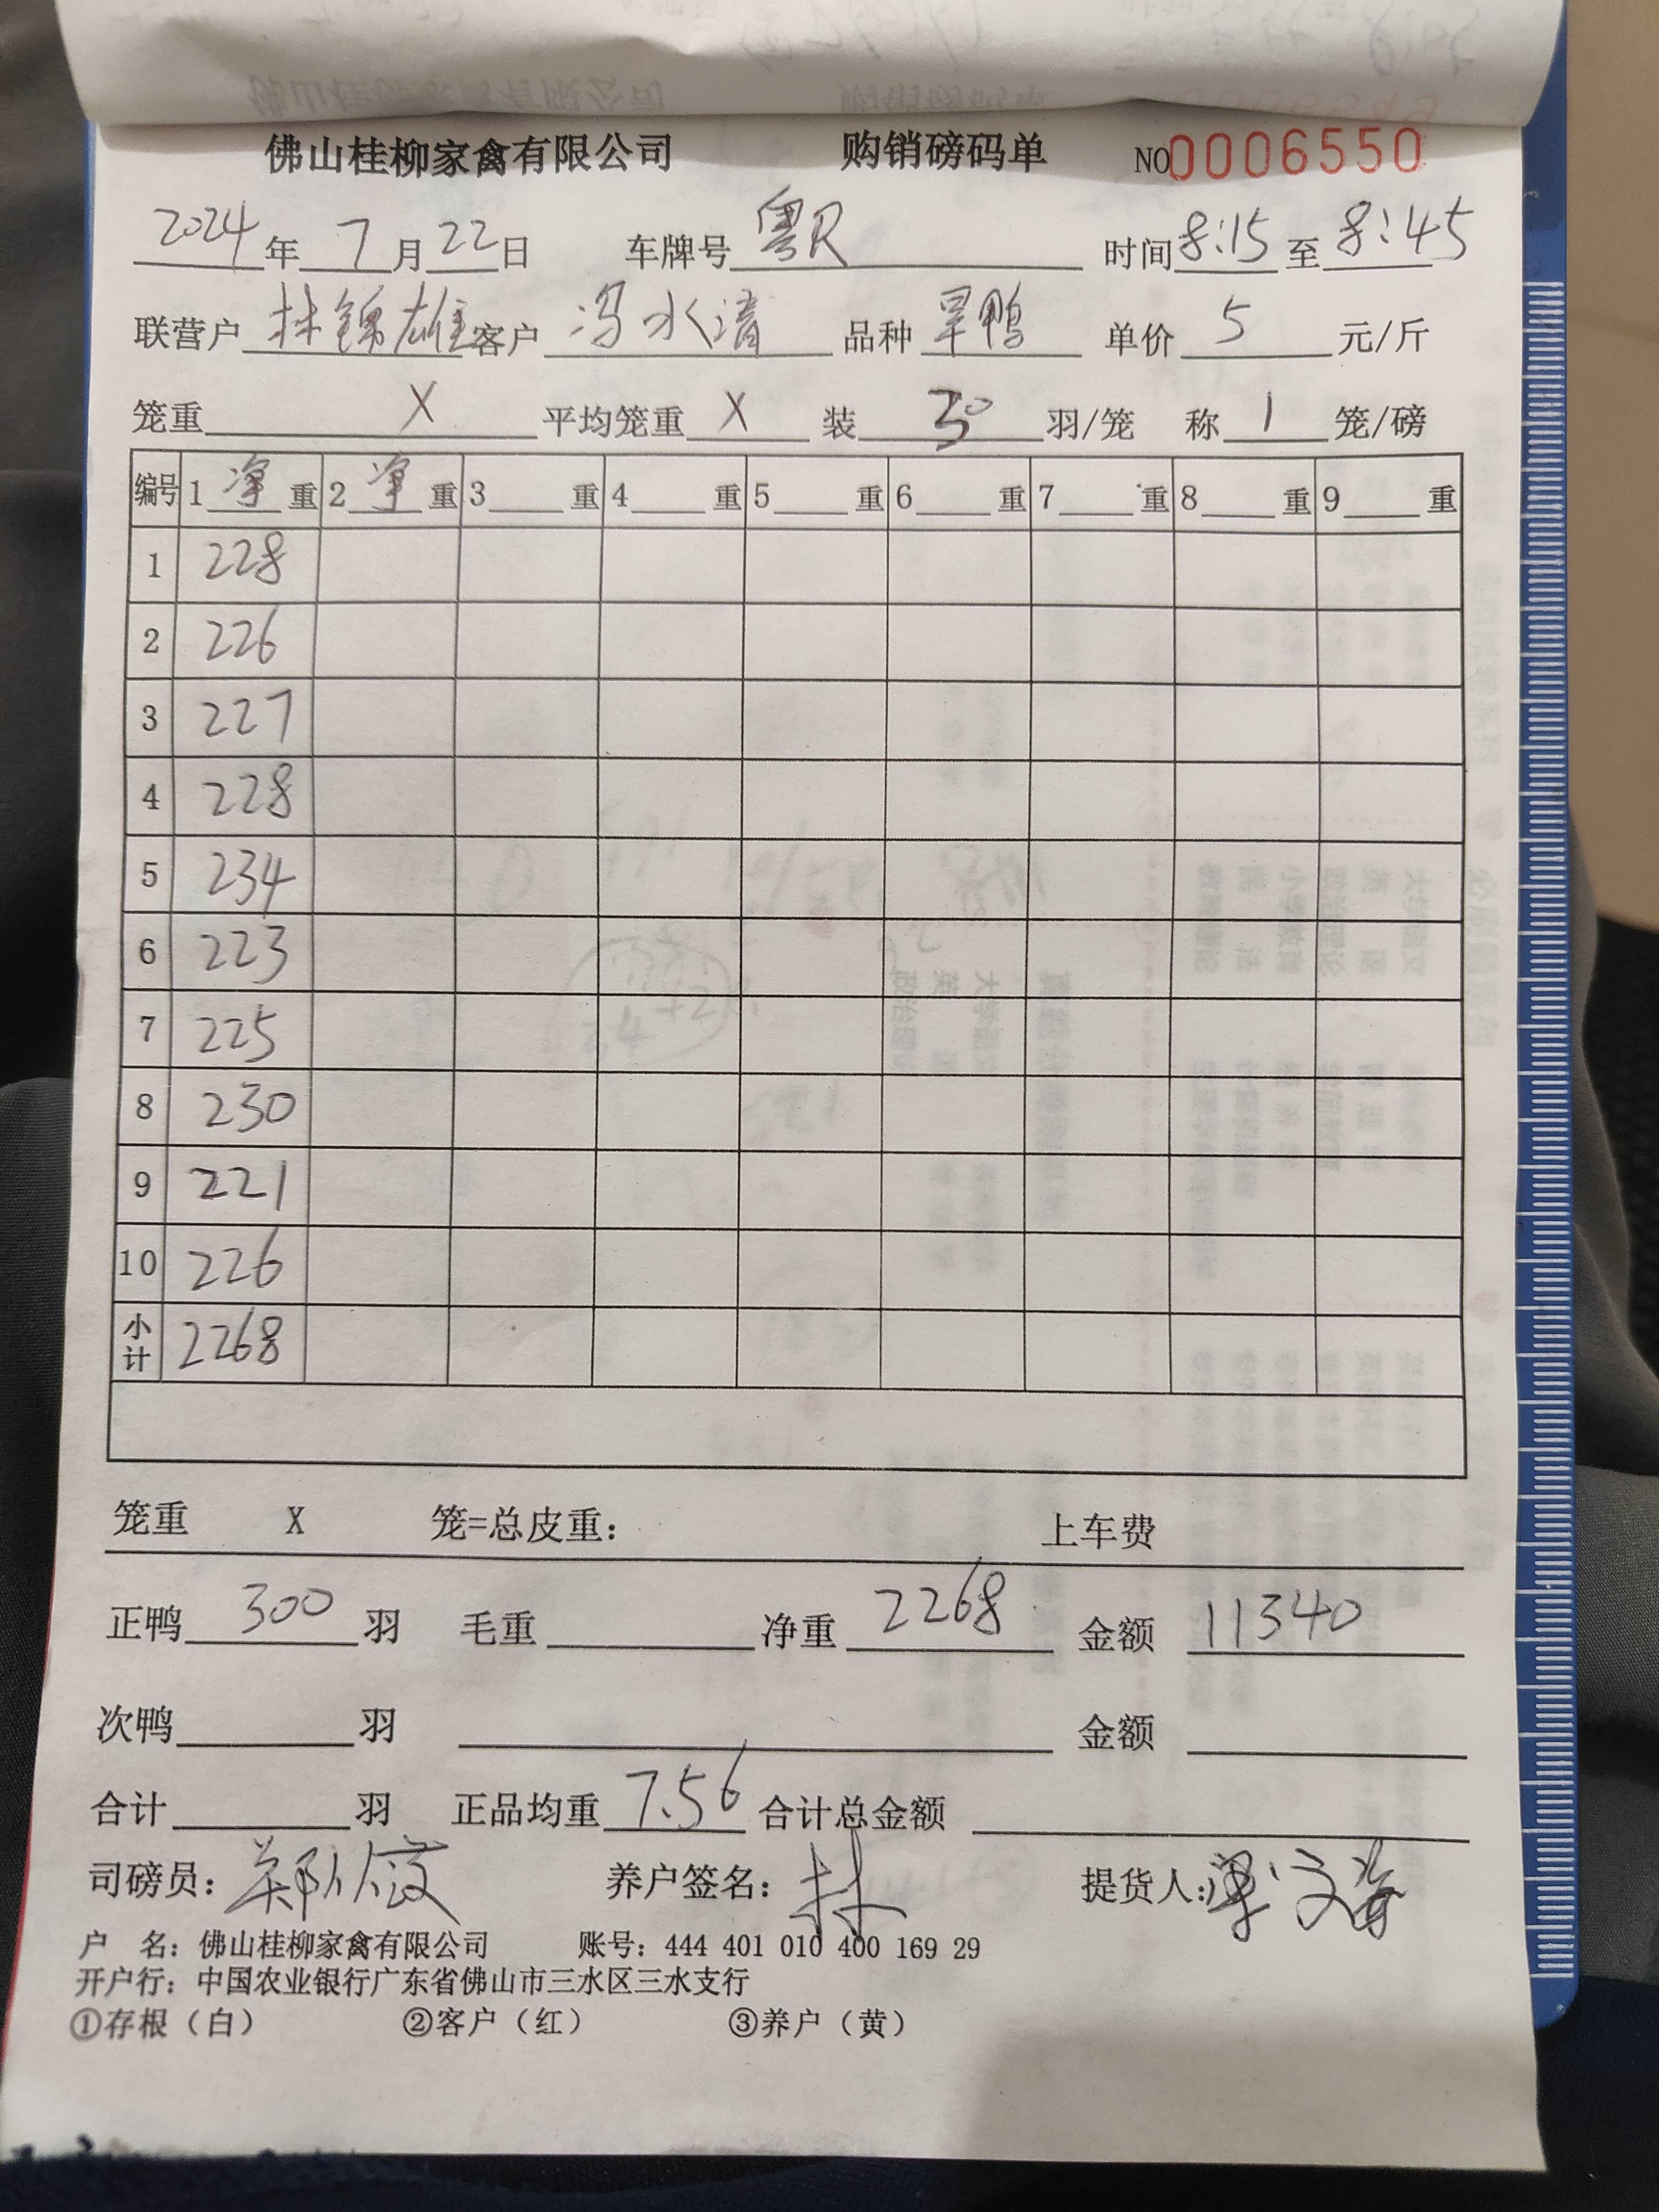 佛山桂柳家禽有限公司 购销磅码单 NO 0006550
2024年7月22日 车牌号 粤R 时间 8:15 至 8:45
联营户 林锦雄 客户 冯水清 品种 旱鸭 单价 5 元/斤
笼重 X 平均笼重 X 装 30 羽/笼 称 1 笼/磅
编号 1 净 重 2 净 重 3 重 4 重 5 重 6 重 7 重 8 重 9 重
1 228
2 226
3 227
4 228
5 234
6 223
7 225
8 230
9 221
10 226
小计 2268
笼重 X 笼=总皮重： 上车费
正鸭 300 羽 毛重 净重 2268 金额 11340
次鸭 羽 金额
合计 羽 正品均重 7.56 合计总金额
司磅员： 养户签名：林 提货人：
户 名：佛山桂柳家禽有限公司 账号：444 401 010 400 169 29
开户行：中国农业银行广东省佛山市三水区三水支行
①存根（白） ②客户（红） ③养户（黄）